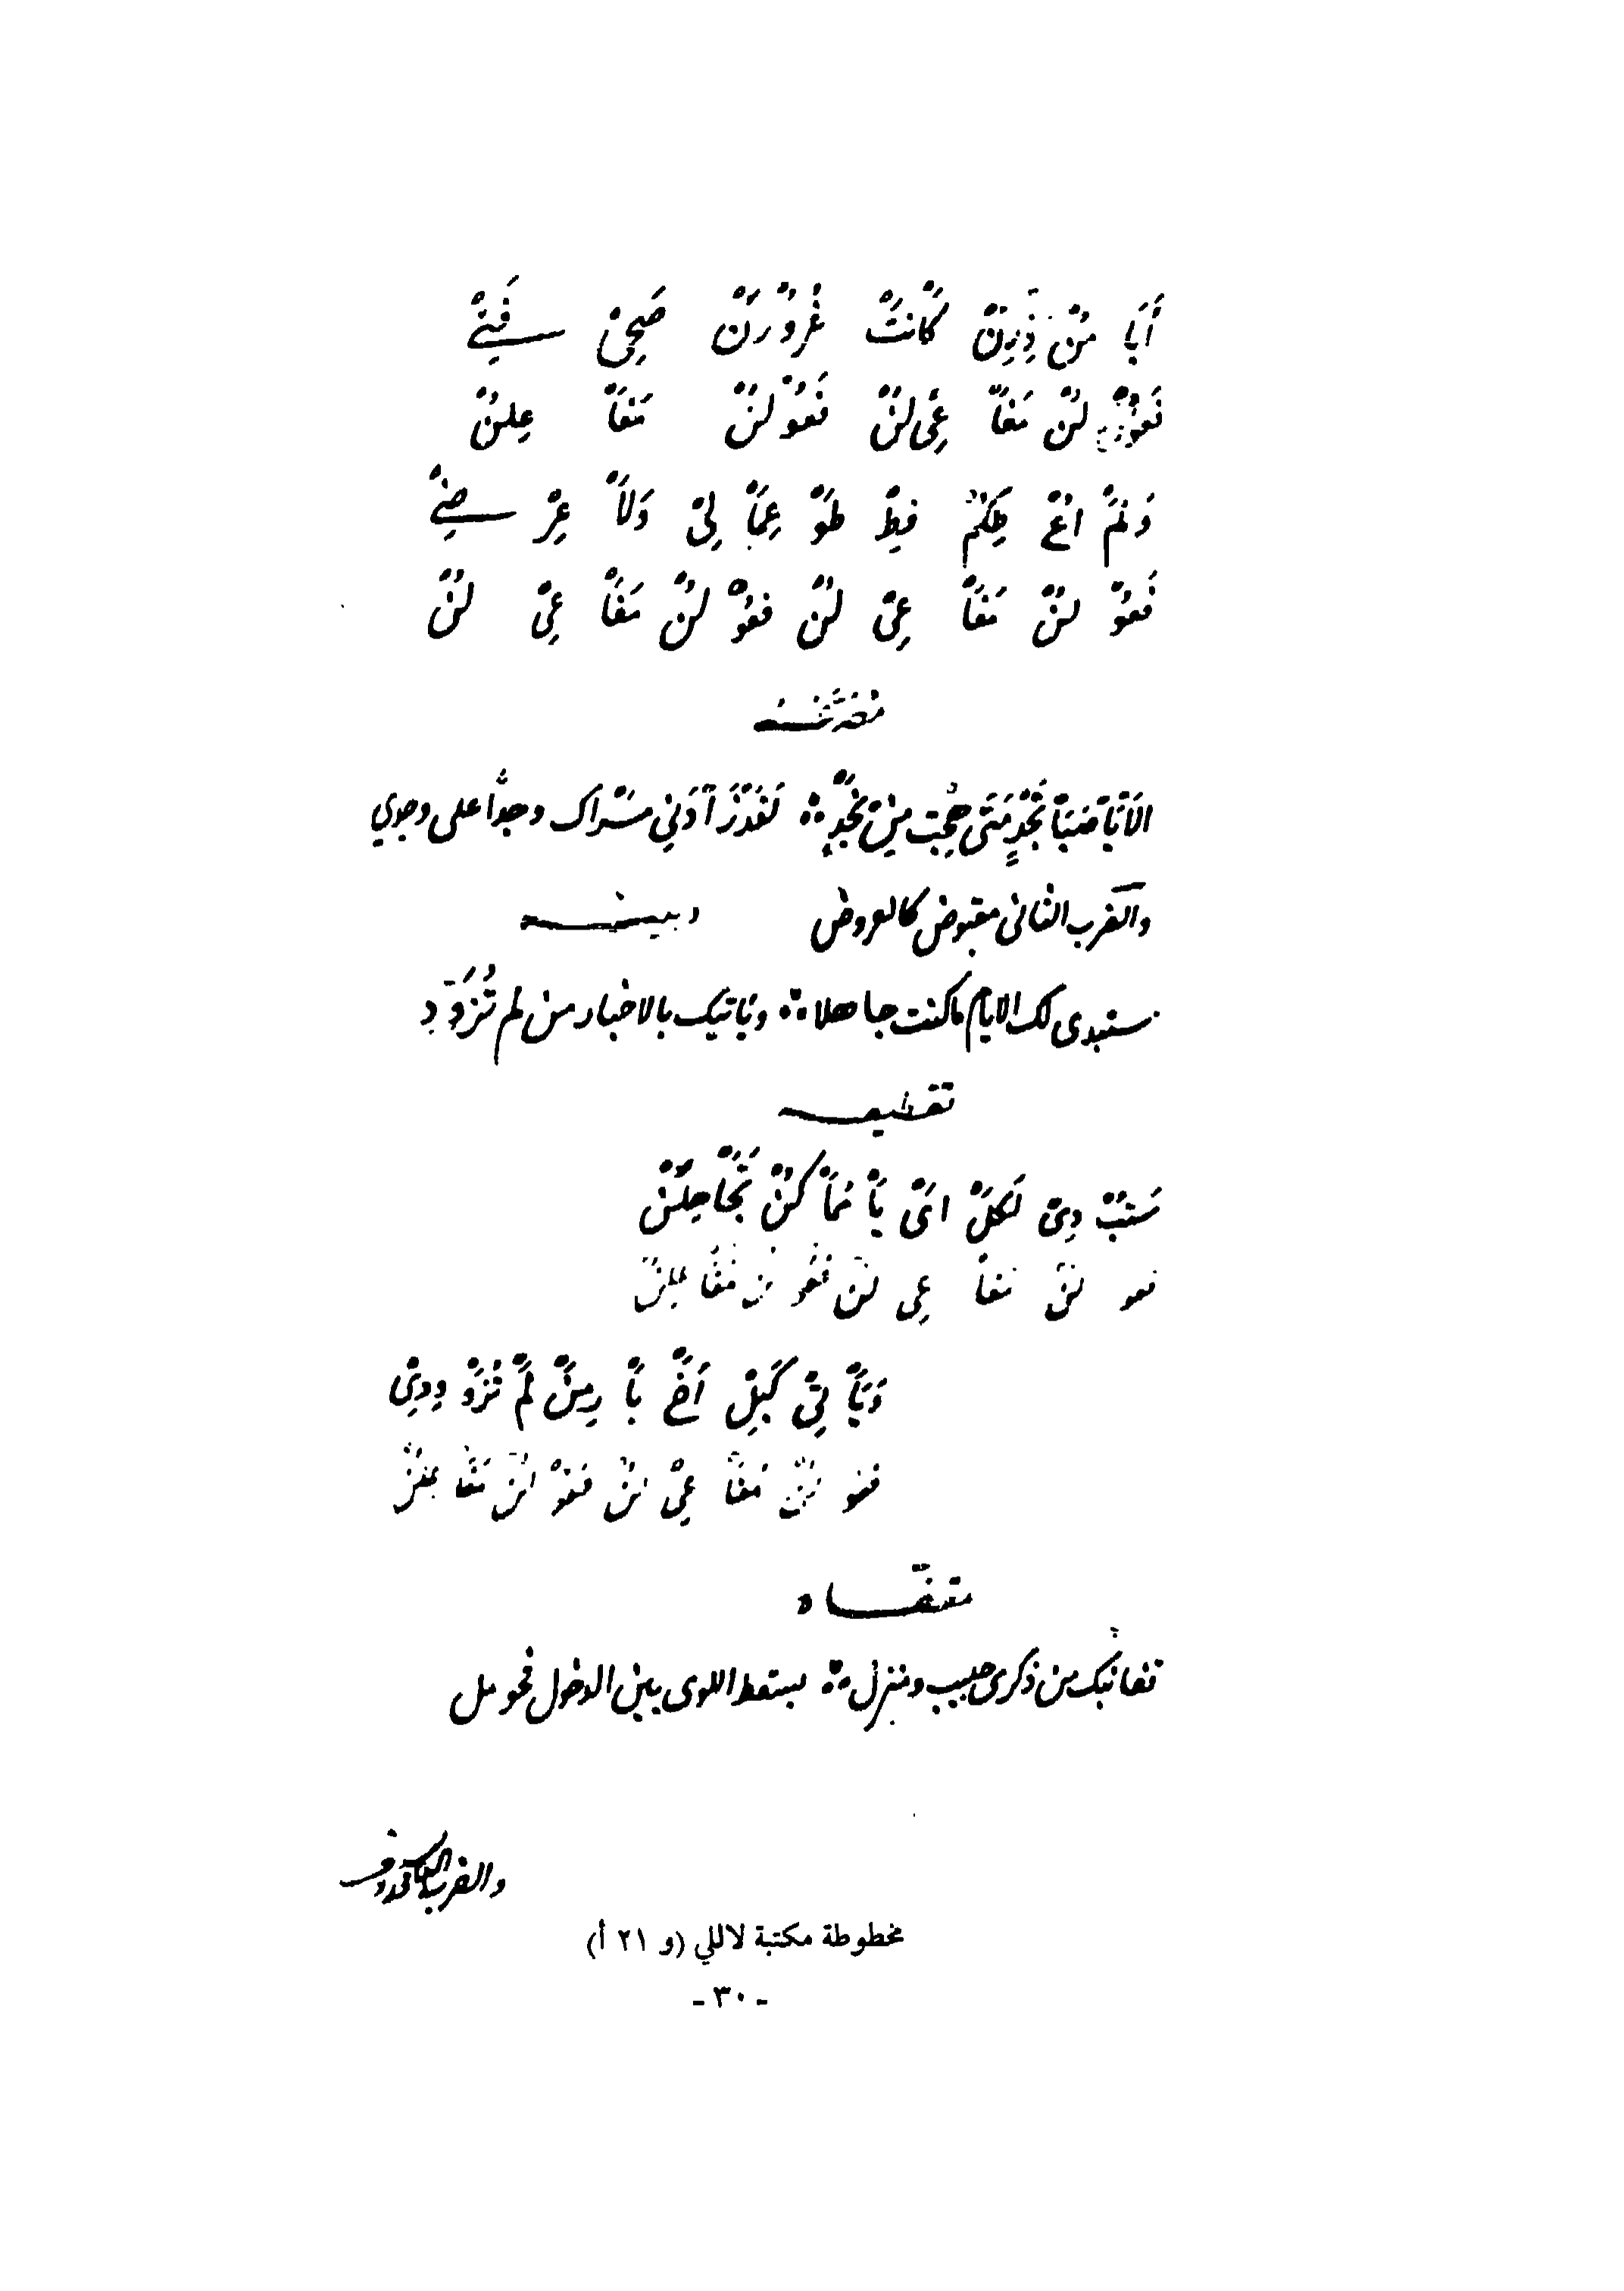 أَبَا مُنْ ذِرِنْ كَانَتْ غُرُوْرَنْ صَحِيْ فَتِيْ
فَعُوْ لُنْ مَفَا عِيْ لُنْ فَعُوْ لُنْ مَفَا عِلُنْ
وَلَمْ اُعْ طِكُمْ فِطْ طَوْ عِمَا لِيْ وَلَا عِرْ ضِيْ
فَعُوْ لُنْ مَفَا عِيْ لُنْ فَعُوْ لُنْ مَفَا عِيْ لُنْ
اَلَا يَا صَبَا نَجْدٍ مَتَى هِجْتِ مِنْ نَجْدٍ لَقَدْ زَادَنِي مَسْرَاكِ وجدًا على وجدي
والضرب الثانى مقبوض كالعروض وبيتـــه
ستبدى لك الايام ما كنت جاهلا وياتيك بالاخبار من لم تُزَوِّدِ
تقطيعـــه
سَتُبْ دِىْ لَكَلْ اَىْ يَا مُمَا كُنْ تَجَاهِلَنْ
فعو لُنْ مَفَا عِي لُنْ فَعُو لُنْ مَفَا عِلُنْ
وَيَأْ تِيْ كَبِلْ اَخْ بَا رِمَنْ لَمْ تُزَوْ وِدِيْ
فعو لُنْ مَفَا عِيْ لُنْ فَعُوْ لُنْ مَفَا عِلُنْ
مقفـــاه
قفا نبك من ذكرى حبيب ومنزل بسقط اللوى بين الدخول فحومل
والضرب
مخطوطة مكتبة لاللي (و ٢١ أ)
- ٣٠ -